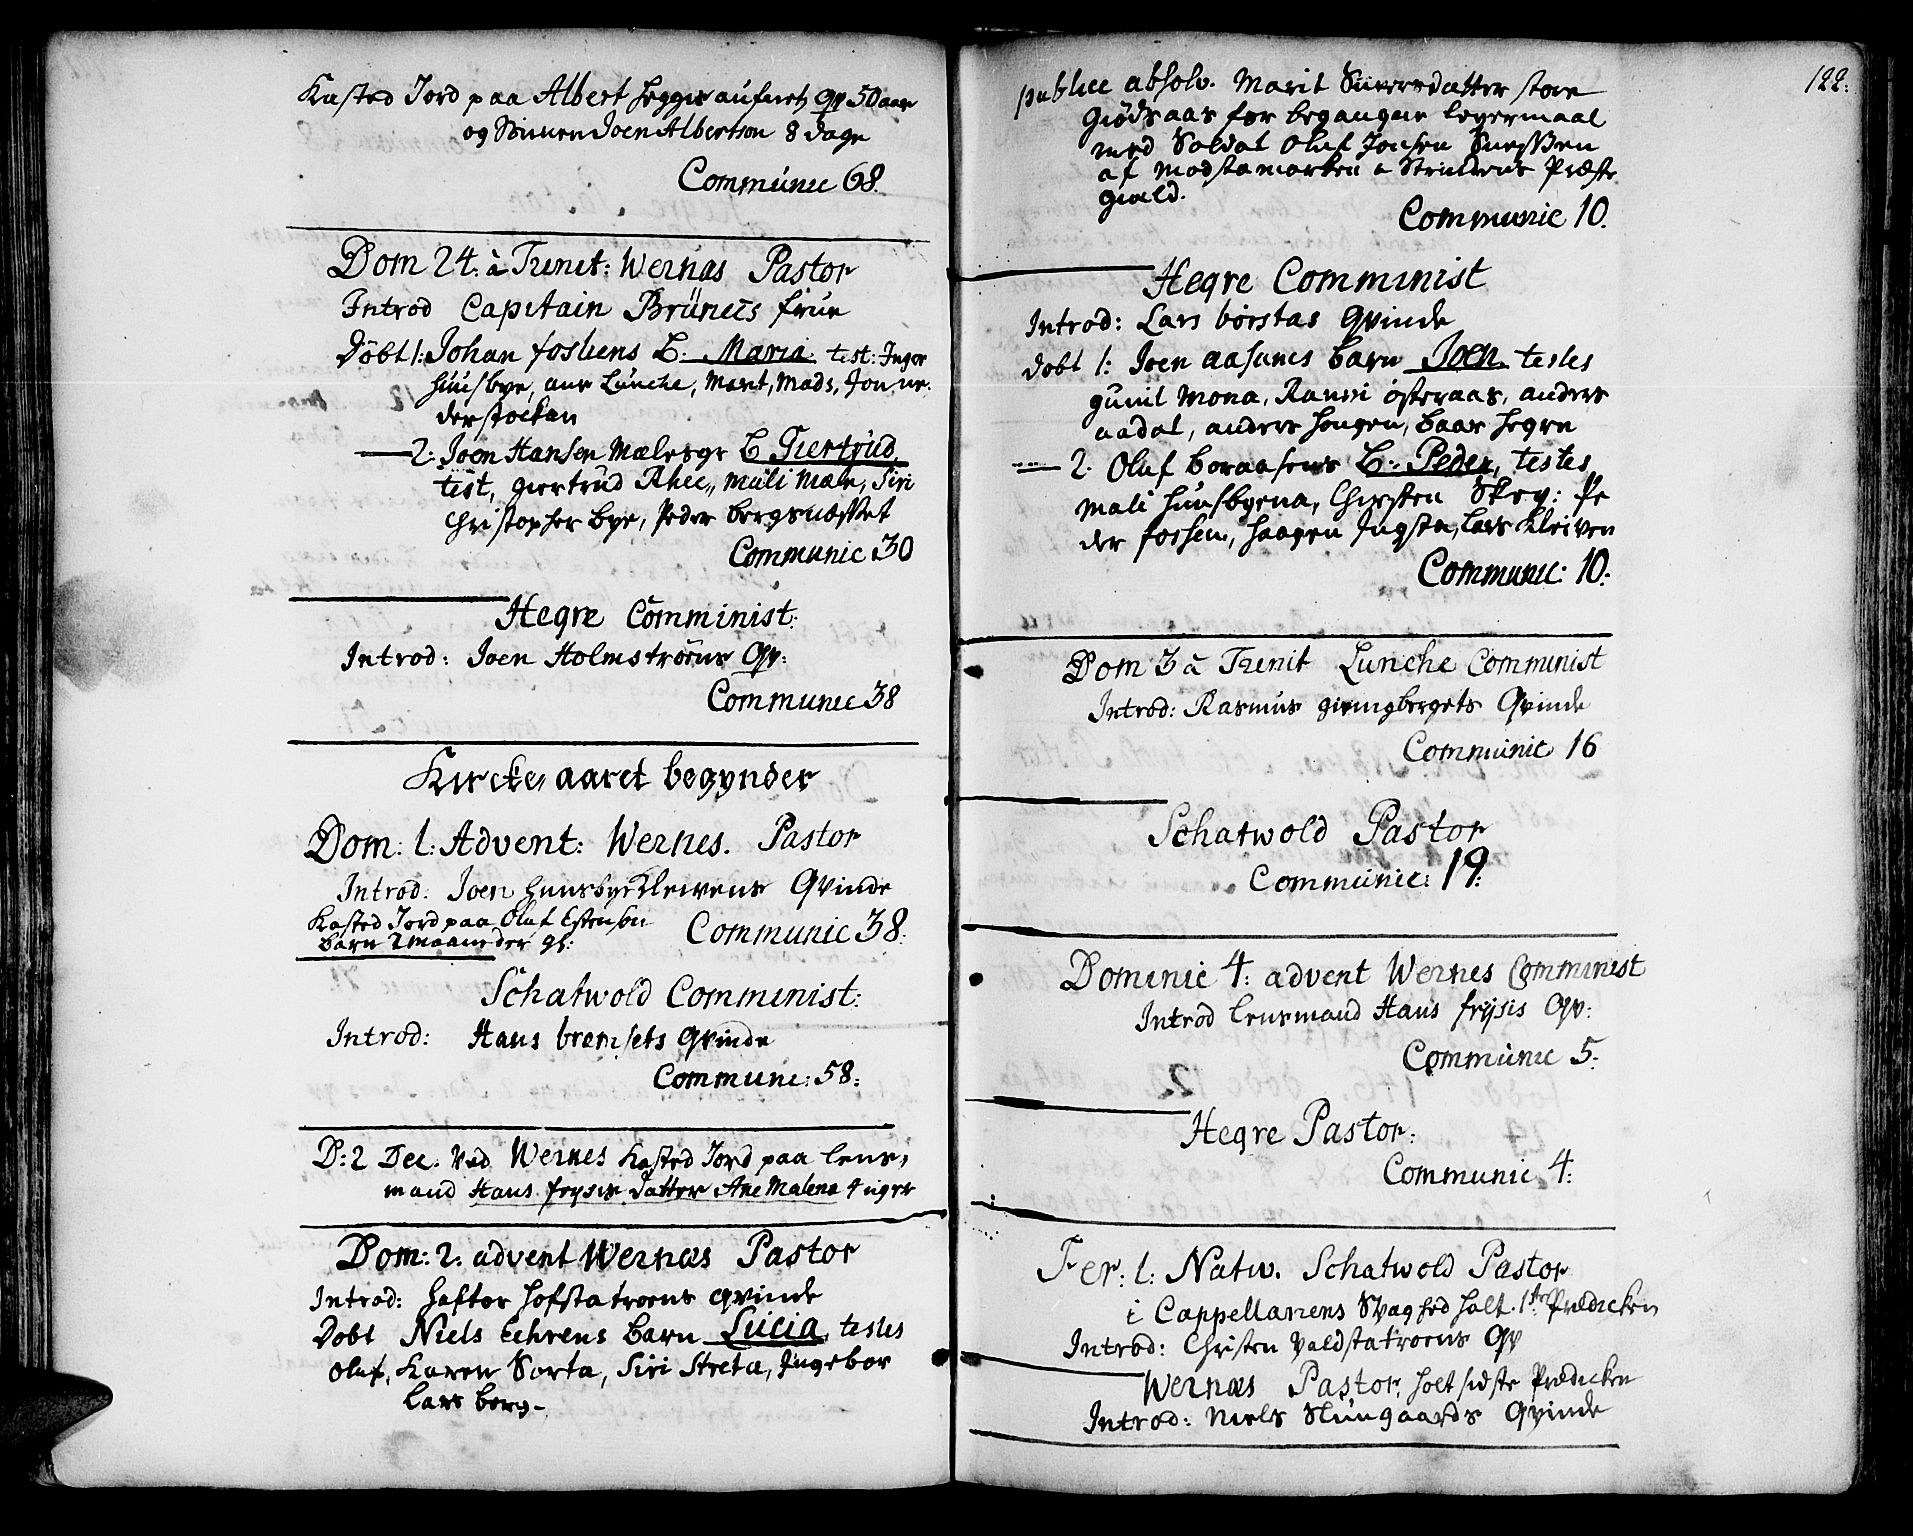 Kasted Jord paa Albert Hegges aufnet qv 50 aar
og Sønnen Joen Albertson 8 dage
Communic 68.
Dom 24. à Trinit: Wernæs Pastor
Introd Capitain Brüneds frue
Döbt 1: Johan foshens B. Maria. test: Inger
Huusbye, ane Lünche, Marit, Mads, Jon ne
derstockan
2. Joen Hansen Mælesgr B Giertrüd
test, giertrüd Rhee,, Mali Mær, Siri
Christopher bye, Peder bergsnæsset
Communic 30
Hegre Comminist:
Introd: Joen Holmstrøens Qv:
Communic 38
Kircke, aaret begynder
Dom: 1. Advent: Wernes. Pastor
Introd. Joen Huusbye Klewens Qvinde
Kasted Jord paa Oluf Estensøn
barn 2 maaneder gl:
Communic 38.
Schatwold Comminist:
Introd: Hans bremsets Qvinde
Commune: 58:
D: 2 Dec. Ved Wernes Kasted Jord paa lens,
mand Hans frysis datter Ane Malena 4 uger
Dom: 2. advent Wernæs Pastor
Introd: Haftor Hofstatroens qvinde
Dobt Niels Eehrens barn Lucia, testes
Oluf, Karen Sorta, Siri Streta, Ingebor
Lars berg-
122.
publice absolv. Marit Siversdatter store
giødsaas for begangen leyermaal
med Soldat Oluf Jonsen
af Mostamarken a Strindens Præste
gield.
Communic 10.
Hegre Comminist
Introd: Lars børstas Qvinde
dobt 1: Joen aasanes barn Joen testes
gunil Mona, Ranni østeraas, anders
aadal, anders Hougen, Baar Hegre
2. Oluf boraasens B. Peder, testes
Mali Huusbyena, Chirsten Skey: Pe
der fossen, Haagen Ingsta, Lars Kleiven
Communic: 10:
Dom 3 à Trenit Lunche Comminist
Introd: Rasmus gievingbergets Qvinde
Communic 16
Schatwold Pastor
Communic: 19:
Dominic 4: advent Wernes Comminist
Introd Lensmand Hans frysis Qv:
Communic 5.
Hegre Pastor:
Communic 4:
Fer: 1: Nativ. Schatwold Pastor
i Cappellanens Svaghed holt. 1ste Prædicken
Introd: Christen Valdstatroens Qv
Wernæs Pastor, holt sidste Prædicken
Introd: Niels Slungaards Qvinde